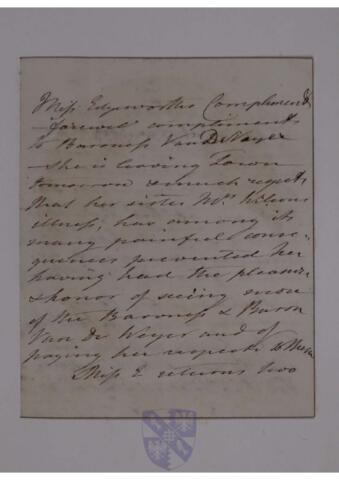 Miss Edgeworths Compliments
— farewel compliments
to Baroness Van De Weyer
— She is leaving Town
tomorrow & much regrets
that her sister Mrs Wilsons
illness, has among its
many painful conse-
quences prevented her
having had the pleasure
& honor of seeing more
of the Baroness & Baron
Van De Weyer and of
paying her respects to them
Miss E returns two